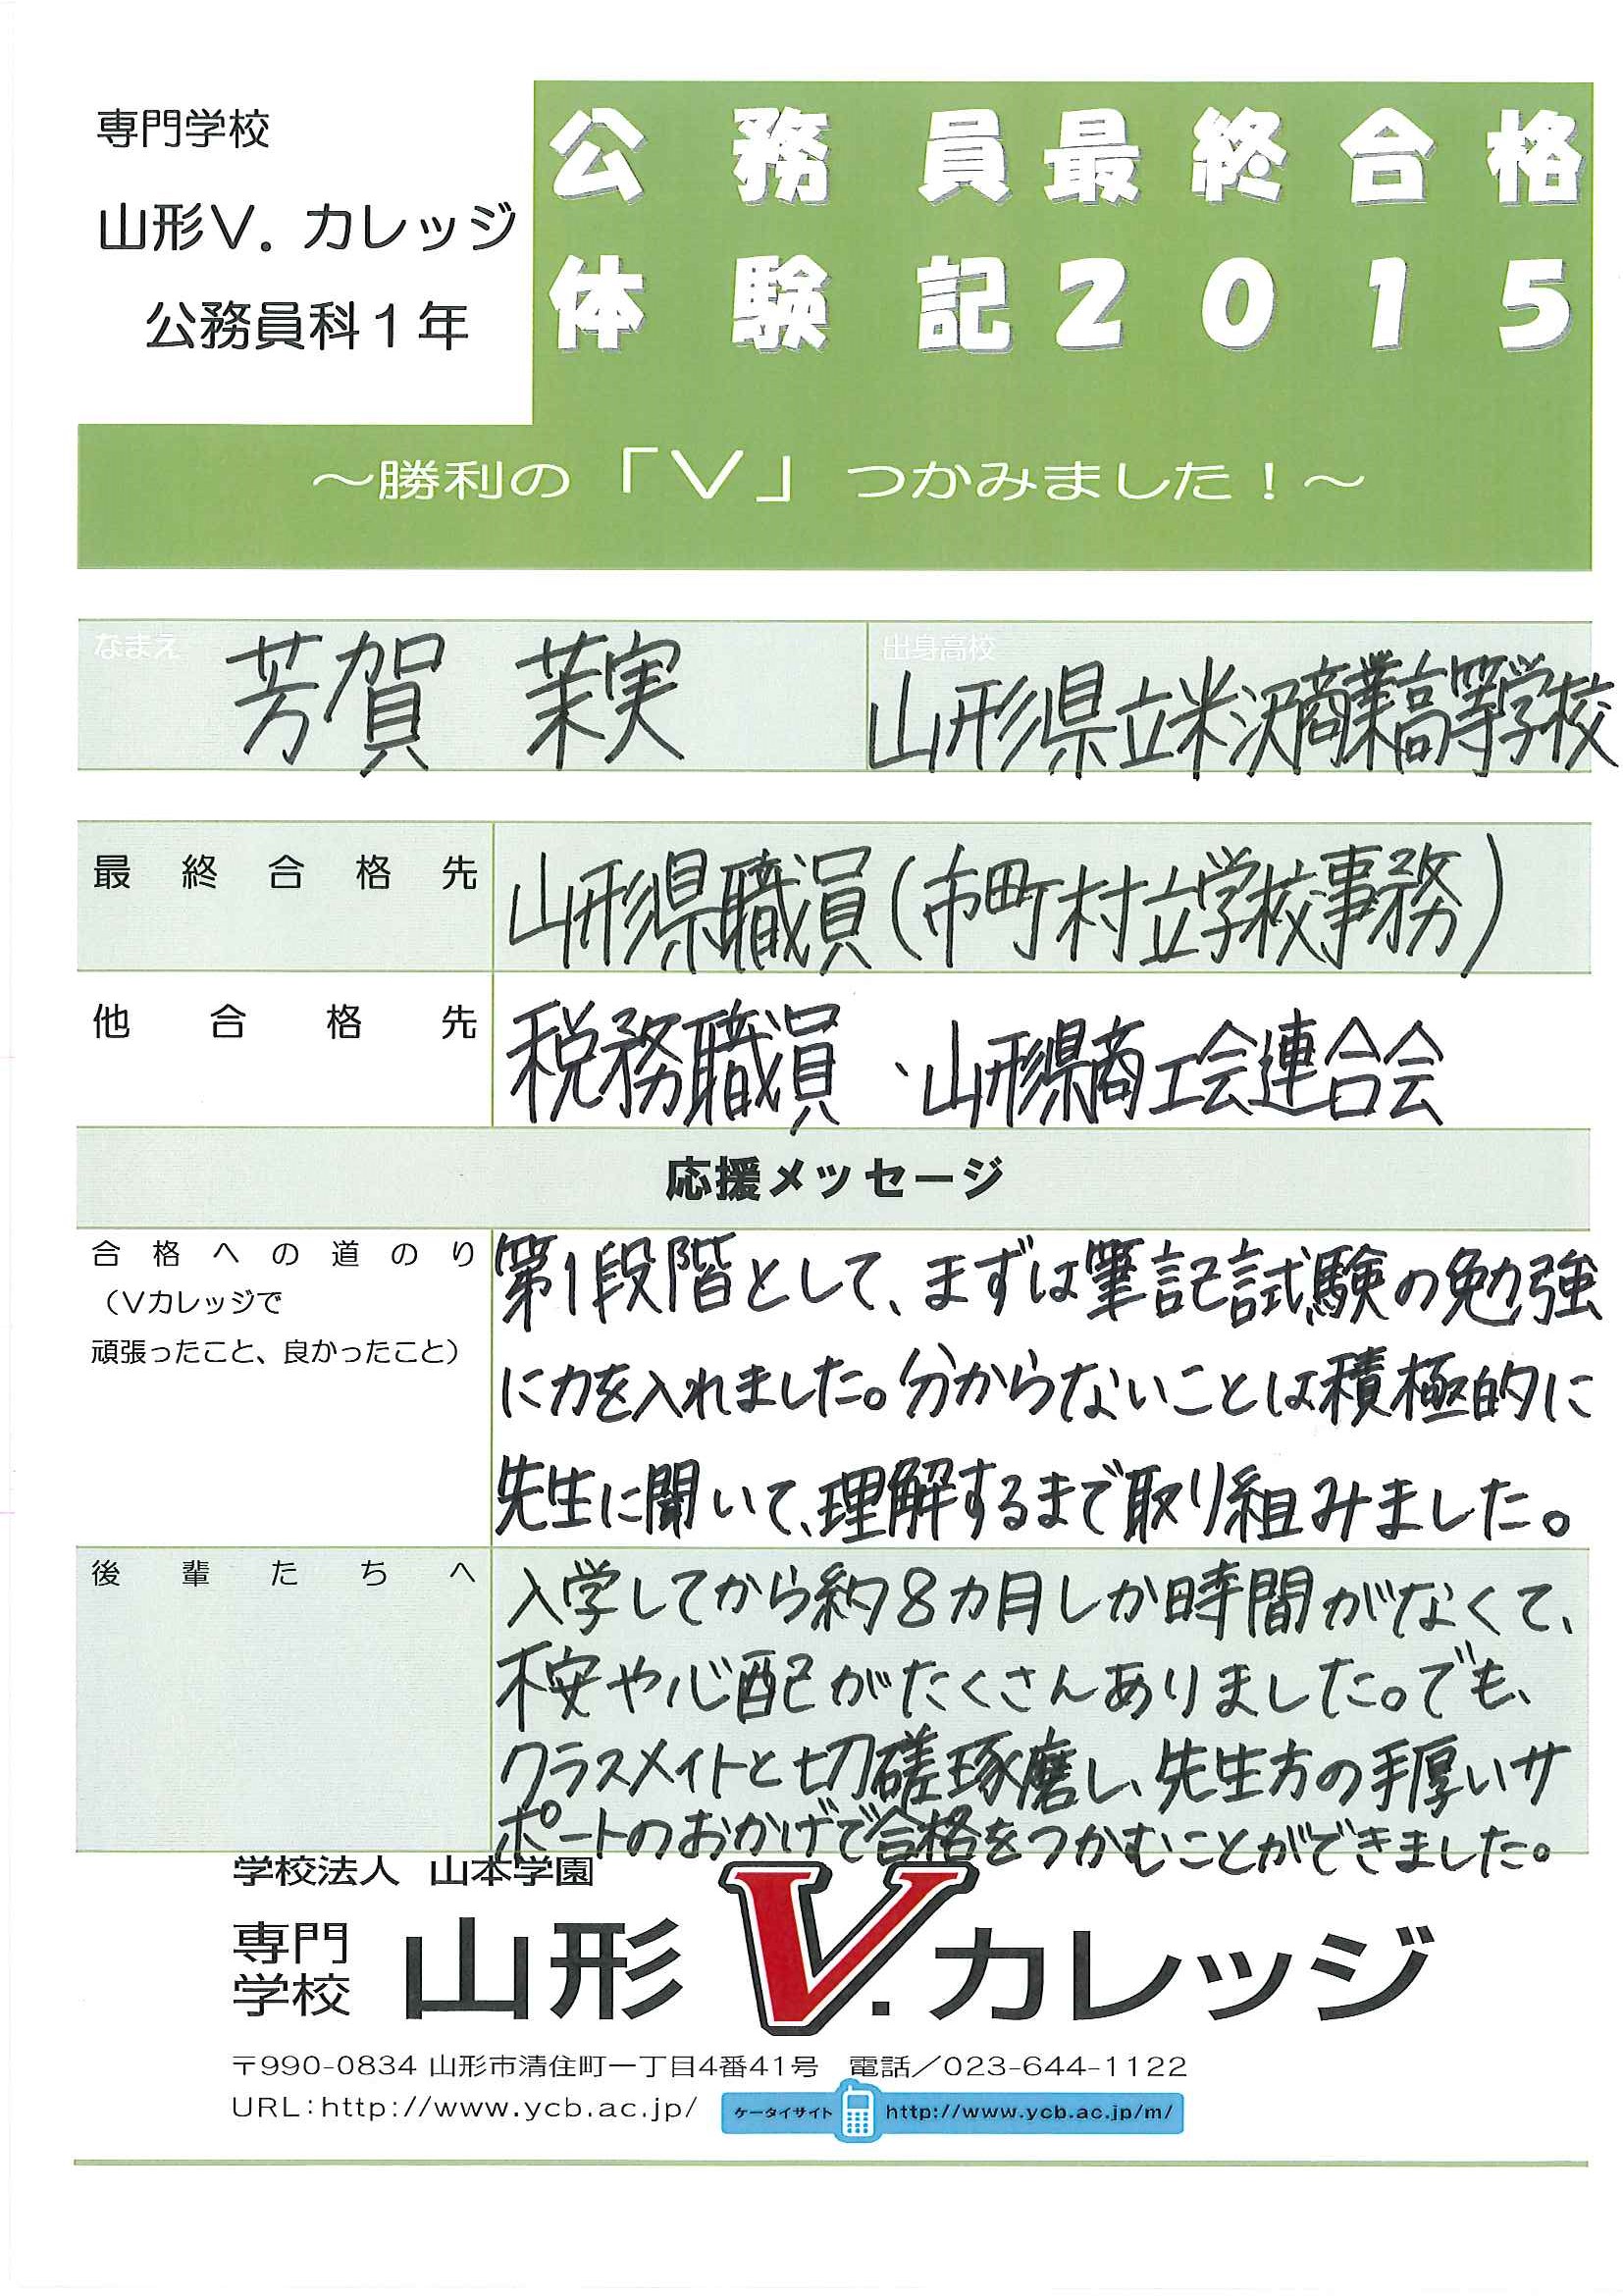 専門学校
山形V.カレッジ
公務員科1年
公務員最終合格
体験記2015
～勝利の「V」つかみました！～
なまえ
芳賀 茉実
出身高校
山形県立米沢商業高等学校
最終合格先
山形県職員(市町村立学校事務)
他合格先
税務職員、山形県商工会連合会
応援メッセージ
合格への道のり
（Vカレッジで
頑張ったこと、良かったこと）
第1段階として、まずは筆記試験の勉強
に力を入れました。分からないことは積極的に
先生に聞いて、理解するまで取り組みました。
後輩たちへ
入学してから約8カ月しか時間がなくて、
不安や心配がたくさんありました。でも、
クラスメイトと切磋琢磨し、先生方の手厚いサ
ポートのおかげで合格をつかむことができました。
学校法人 山本学園
専門学校 山形V.カレッジ
〒990-0834 山形市清住町一丁目4番41号 電話／023-644-1122
URL:http://www.ycb.ac.jp/ ケータイサイト http://www.ycb.ac.jp/m/